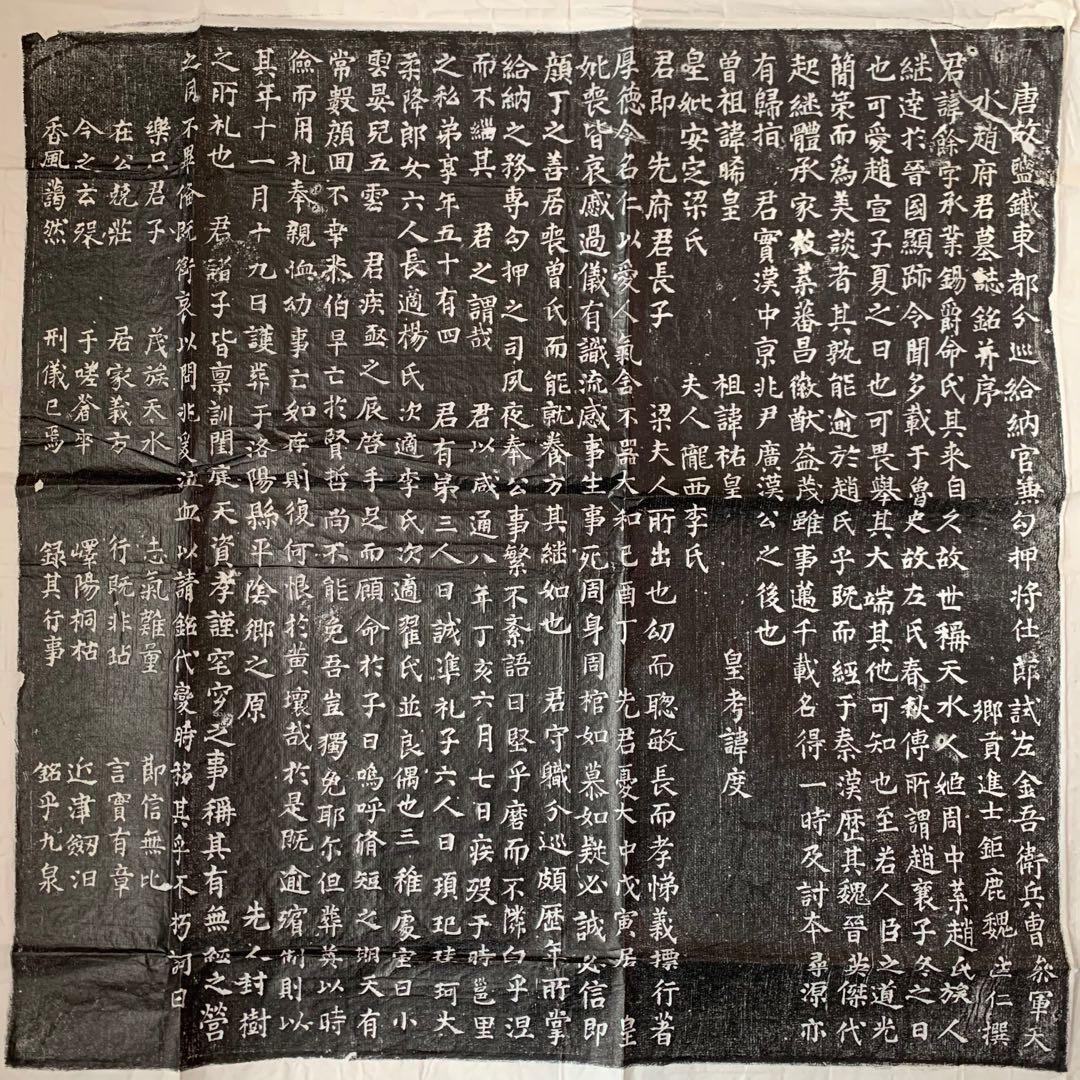 唐故鹽鐵東都分巡給納官兼勾押將仕郎試左金吾衛兵曹叅軍天
水趙府君墓誌銘并序 鄉貢進士鉅鹿魏 仁撰
君諱餘字承業錫爵命氏其來自久故世稱天水人姬周中葉趙氏族人
継達於晉國顯跡令聞多載于魯史故左氏春秋傳所謂趙襄子冬之日
也可愛趙宣子夏之日也可畏舉其大端其他可知也至若人臣之道光
簡策而爲美談者其孰能逾於趙氏乎既而經于秦漢歷其魏晉英傑代
起継體承家枝葉蕃昌徽猷益茂雖事邁千載名得一時及討本尋源亦
有歸指 君實漢中京兆尹廣漢公之後也
曾祖諱晞皇 祖諱祐皇 皇考諱度
皇妣安定梁氏 夫人隴西李氏
君即 先府君長子 梁夫人所出也幼而聰敏長而孝悌義摽行著
厚德令名仁以愛人氣含不器大和己酉丁 先君憂大中戊寅居 皇
妣喪皆哀慼過儀有識流感事生事死周身周棺如慕如疑必誠必信即
顔丁之善居喪曾氏而能就養方其継如也 君守職分巡頗歷年所掌
給納之務專勾押之司夙夜奉公事繁不紊語曰堅乎磨而不隣白乎涅
而不緇其 君之謂哉 君以咸通八年丁亥六月七日疾歿于時邕里
之私弟享年五十有四 君有弟三人曰誠準礼子六人曰頊玘 珂大
柔降郎女六人長適楊氏次適李氏次適翟氏並良偶也三稚處室曰小
雲晏兒五雲 君疾亟之辰啓手足而顧命於子曰嗚呼脩短之期天有
常數顔回不幸冉伯早亡於賢哲尚不能免吾豈獨免耶尔但葬英以時
儉而用礼奉親恤幼事亡如存則復何恨於黃壤哉於是既逾殯制則以
其年十一月十九日護葬于洛陽縣平陰鄉之原 先人封樹
之所礼也 君諸子皆禀訓閨庭天資孝謹窀穸之事稱其有無 之營
之月不異俻既銜哀以問兆爰泣血以請銘代變時移其乎不朽詞曰
樂只君子 茂族天水 志氣難量 即信無比
在公兢莊 居家義方 行既非玷 言實有章
今之云歿 于嗟蒼乎 嶧陽桐枯 近津劒汩
香風藹然 刑儀已焉 録其行事 銘乎九泉